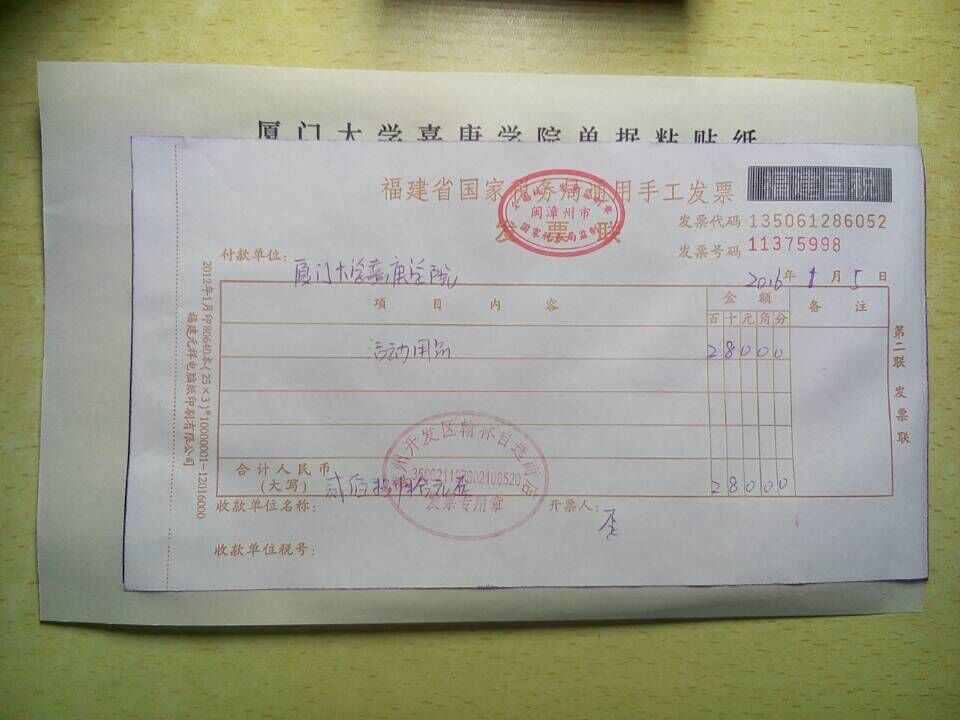 厦门大学嘉庚学院单据粘贴纸
福建省国家税务局通用手工发票
发票联
闽漳州市
国家税务局监制
福建国税
发票代码 135061286052
发票号码 11375998
付款单位：厦门大学嘉庚学院
2016年1月5日
项目内容 金额 备注
百十元角分
活动用品 28000
合计人民币
(大写) 贰佰捌拾元整 28000
收款单位名称：
开票人：
收款单位税号：
发票专用章
第二联 发票联
2012年1月印80640本(25×3)*10000001-12016000
福建元祥电脑纸印刷有限公司